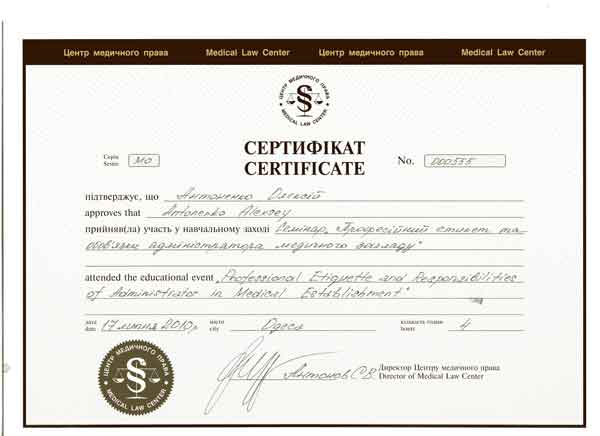 Центр медичного права Medical Law Center Центр медичного права Medical Law Center
ЦЕНТР МЕДИЧНОГО ПРАВА
MEDICAL LAW CENTER
СЕРТИФІКАТ
CERTIFICATE
Серія
Series
МО
No. 000535
підтверджує, що Антоненко Олексій
approves that Antonenko Alexey
прийняв(ла) участь у навчальному заході Семінар „Професійний етикет та
обов'язки адміністратора медичного закладу"
attended the educational event „Professional Etiquette and Responsibilities
of Administrator in Medical Establishment"
дата
date
17 липня 2010р
місто
city
Одеса
кількість годин
hours
4
ЦЕНТР МЕДИЧНОГО ПРАВА
MEDICAL LAW CENTER
Антонов С.В.
Директор Центру медичного права
Director of Medical Law Center